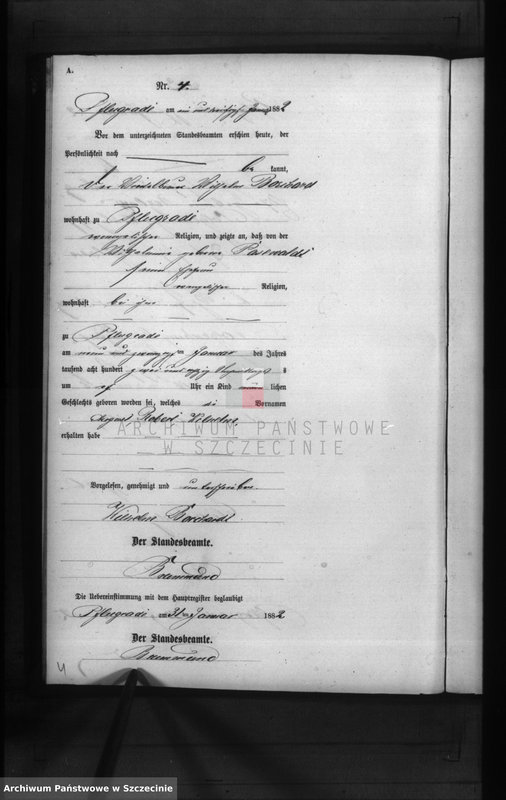 A.
Nr. 4.
Pflugradi am ein und dreißigsten Januar 1882
Vor dem unterzeichneten Standesbeamten erschien heute, der
Persönlichkeit nach
be kannt,
der Wilhelm Borchard
wohnhaft zu Pflugradi
evangelischer Religion, und zeigte an, daß von der
Wilhelmine geborene Pasewaldt
seiner Ehefrau
evangelischer Religion,
wohnhaft bei ihm
zu Pflugradi
am neun und zwanzigsten Januar des Jahres
tausend acht hundert zwei und achtzig Vormittags
um Uhr ein Kind männ lichen
Geschlechts geboren worden sei, welches die Vornamen
August Robert
erhalten habe
Vorgelesen, genehmigt und unterschrieben
Borchardt
Der Standesbeamte.
Die Uebereinstimmung mit dem Hauptregister beglaubigt
Pflugradi am 31 Januar 1882
Der Standesbeamte.
4
ARCHIWUM PAŃSTWOWE
W SZCZECINIE
Archiwum Państwowe w Szczecinie